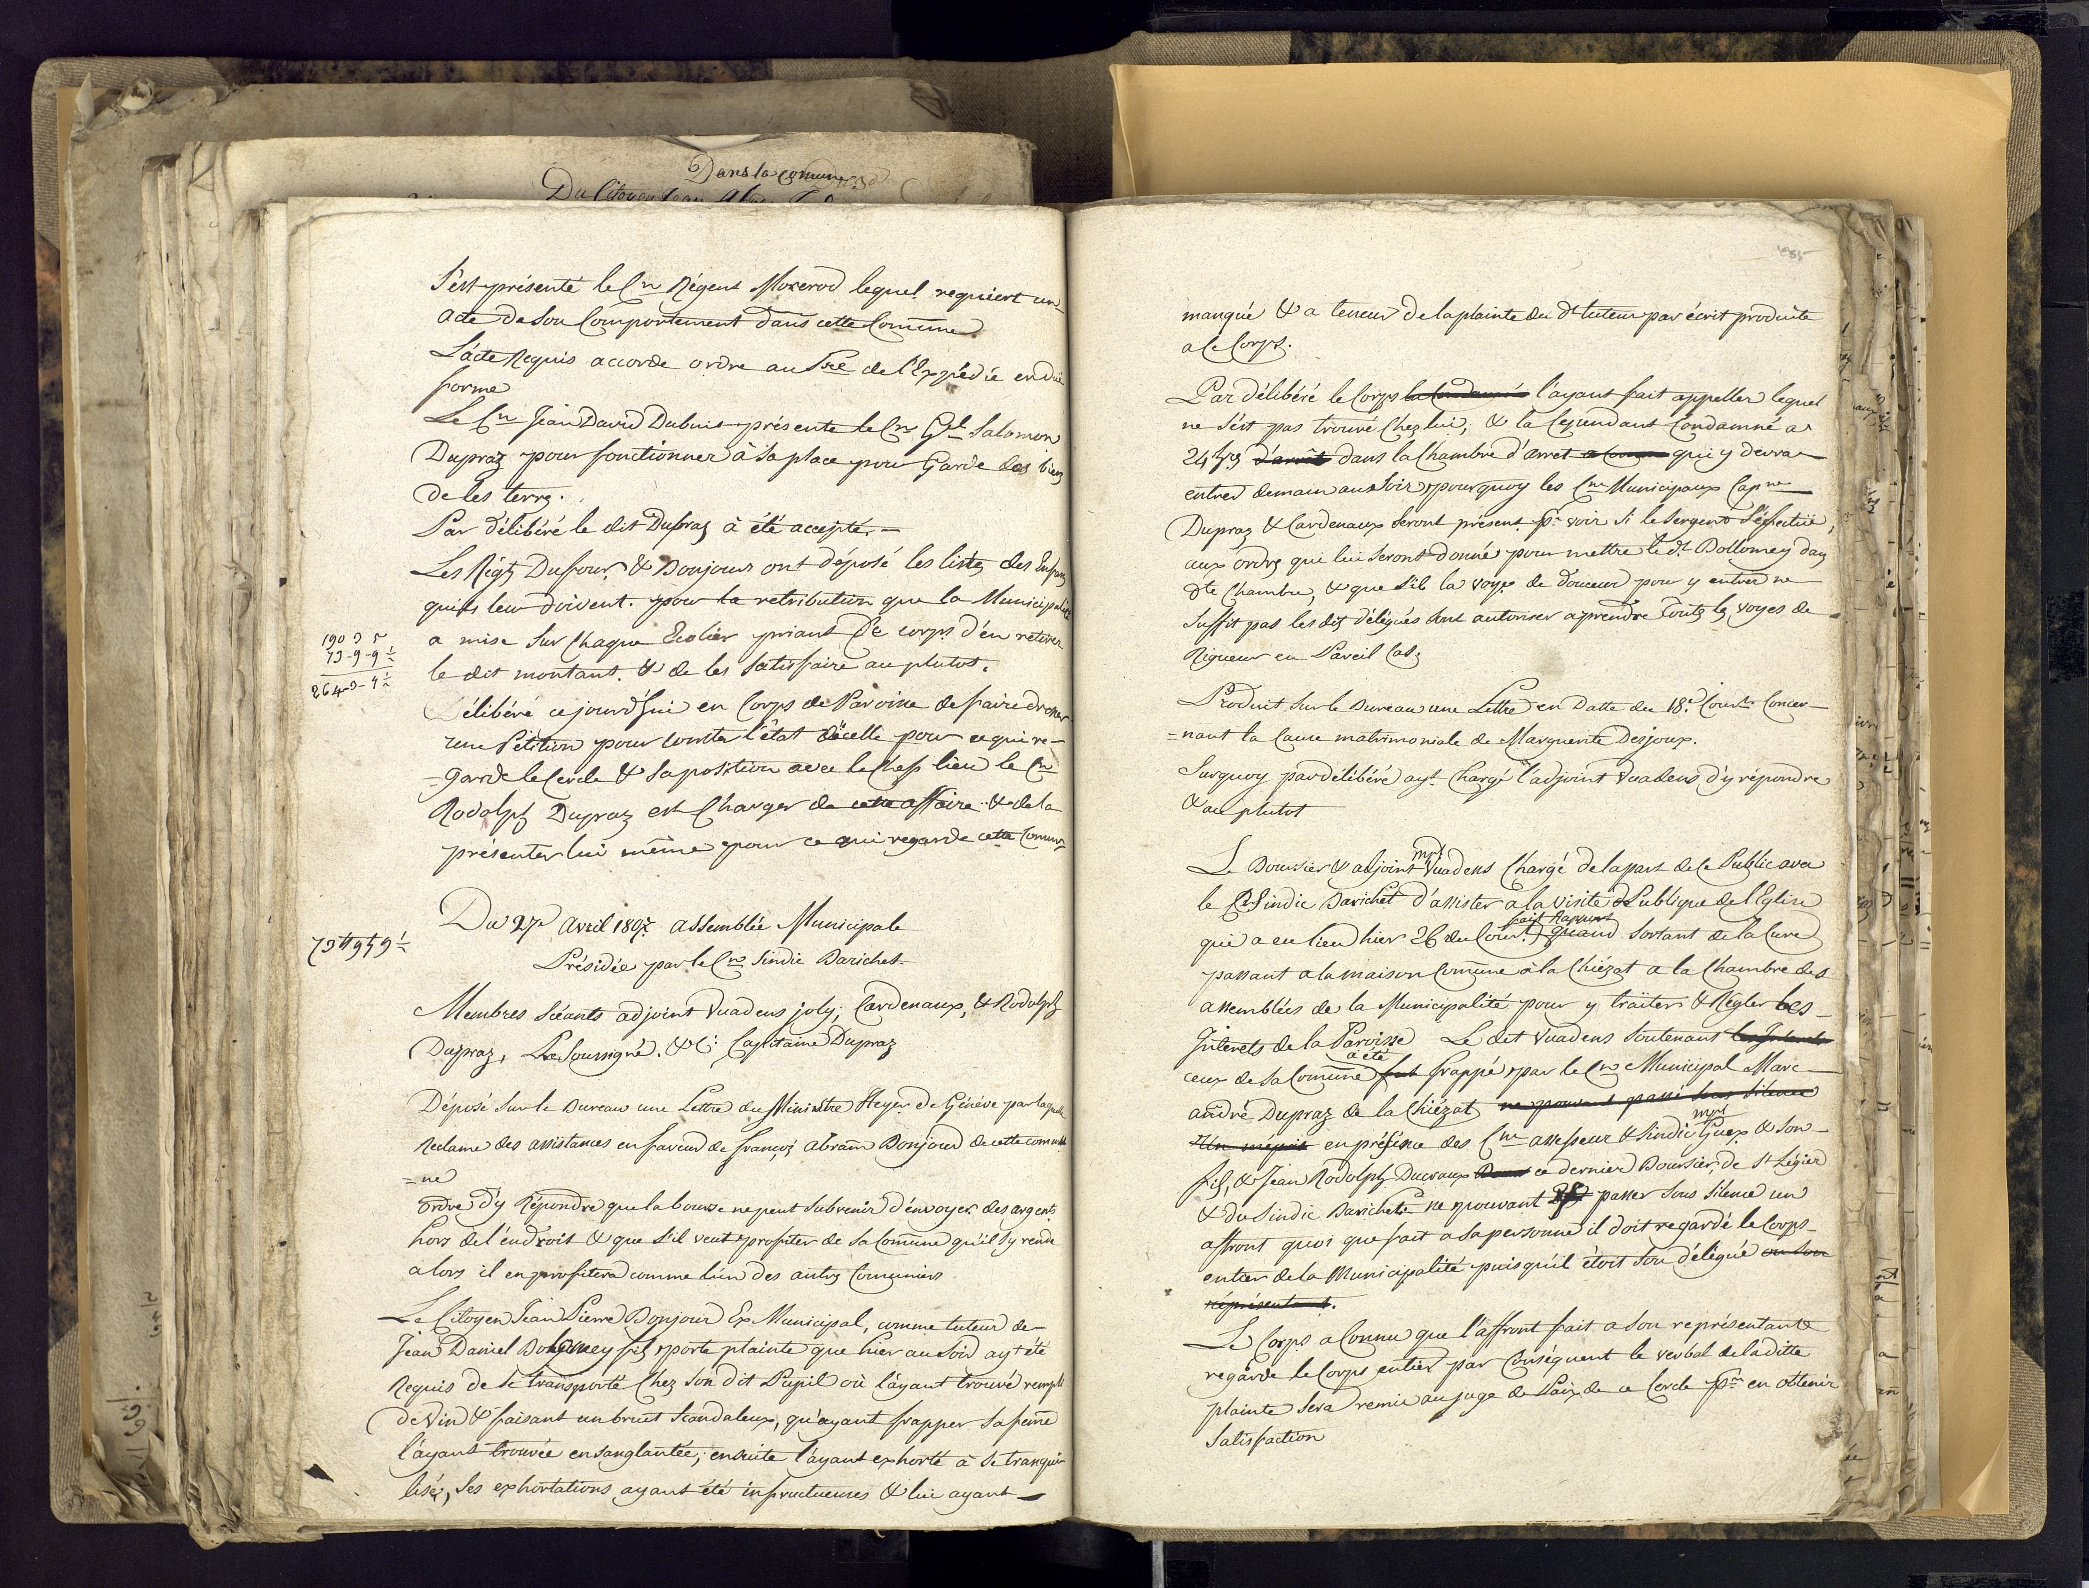 Dans la comune
Du Citoyen Jean
S'est présenté le Cn Régent Moxerod lequel requiert un
acte de son Comportement dans cette Comune
L'acte Requis accorde ordre au Sre de l'Expédié en due
forme
Le Cn Jean David Dubuis présente le Cn Gl Salomon
Dupraz pour fonctionner à sa place pour Garde des biens
de les terrs.
Par délibéré le dit Dupraz à été accepté.
Les Régts Dufour & Bonjour ont déposé les listes des Enfans
qui leur doivent. pour la retribution que la Municipalité
a mise sur Chaque Ecolier priant ce corps d'en retirer
le dit montant. & de les satisfaire au plutot.
190 3 5
73-9-9½
264-3-4½
Délibéré ce jourd'hui en Corps de Paroisse de faire dresser
une Pétition pour conster l'état d'icelle pour ce qui re-
=garde le Cercle & sa position avec le Chef lieu le Cn
Rodolph Dupraz est Charger de cette affaire & de la
présenter lui même pour ce qui regarde cette Comune
Du 27e Avril 1807. assemblée Municipale
73 ff 9 s 9½
Présidée par le Cn Sindic Barichet
Membres Séants adjoint Vuadens joly, Cardenaux, & Rodolph
Dupraz, Le Soussigné. & C: Capitaine Dupraz
Déposé sur le Bureau une Lettre du Ministre Heyer de Généve par laquelle
Reclame des assistances en faveur de françois abram Bonjour de cette commu
=ne
ordre d'y Répondre que la bourse ne peut subvenir d'énvoyer des argents
hors de l'éndroit & que s'il veut profiter de sa Comune qu'il s'y rende
alors il en profitera comme lun des autres Comuniers
Le Citoyen Jean Pierre Bonjour Ex Municipal, comme tuteur de
Jean Daniel Bolomey fils porte plainte que hier au soir ayt été
Requis de se transporté Chez son dit Pupil où l'ayant trouvé rempli
de Vin & faisant un bruit Scandaleux, qu'ayant frapper sa feme
l'ayant trouvée ensanglantée; ensuite l'ayant exhorté à se tranqui
lisé, ses exhortations ayant été infructueuses & lui ayant
manqué & a teneur de la plainte du dt tuteur par écrit produite
a Ce Corps.
Par délibéré le Corps l'ayant fait appeller lequel
ne s'est pas trouvé Chez lui, & la Cependant Condamné a
24 hrs d'arrêt dans la Chambre d'arret qui y devra
entrer demain au Soir, pourquoy les Cns Municipaux Capne
Dupraz & Cardenaux seront présent pr voir si le Sergent s'éfectüe,
aux ordrs qui lui seront donnés pour mettre le dt Bollomey dans
dte Chambre, & que s'il la voye de douceur pour y entrer ne
suffit pas les dits délégués sont autoriser a prendre Toutes les voyes de
Rigueur en Pareil Cas
Produit sur le Bureau une Lettre en Datte du 18e Court Concer-
=nant la Cause matrimoniale de Marguerite Desjoux.
Surquoy par délibéré ayt Chargé l'adjoint Vuadens d'y répondre
& au plutot
Le Boursier & adjoint mpl Vuadens Chargé de la part de Ce Public avec
le Cn Sindic Barichet d'assister a la visite Publique de l'Eglise
fait Rapport
qui a eu lieu hier 26 du Court. quand sortant de la Cure
passant a la maison Comune à la Chiézat a la Chambre des
assemblées de la Municipalité pour y traiter & Régler les
Interets de la Paroisse Le dit Vuadens Soutenant les Interets
a été
ceux de sa Comune fut frappé par le Cn Municipal Marc
andré Dupraz de la Chiézat ne pouvant passé sous Silence
Un mépris en présence des Cns assesseur & Sindic mpl Guex & son
fils, & Jean Rodolph Ducraux ce dernier Boursier, de St Légier
& du Sindic Barichet. ne pouvant passer sous silence un
affront quoi que fait a sa personne il doit regardé le Corps
entier de la Municipalité puisqu'il étoit son délégué ou son
réprésentant.
Le Corps a Connu que l'affront fait a son représentant
regarde le Corps entier par Conséquent le verbal de la ditte
plainte sera remie au juge de Paix de ce Cercle pr en obtenir
Satisfaction